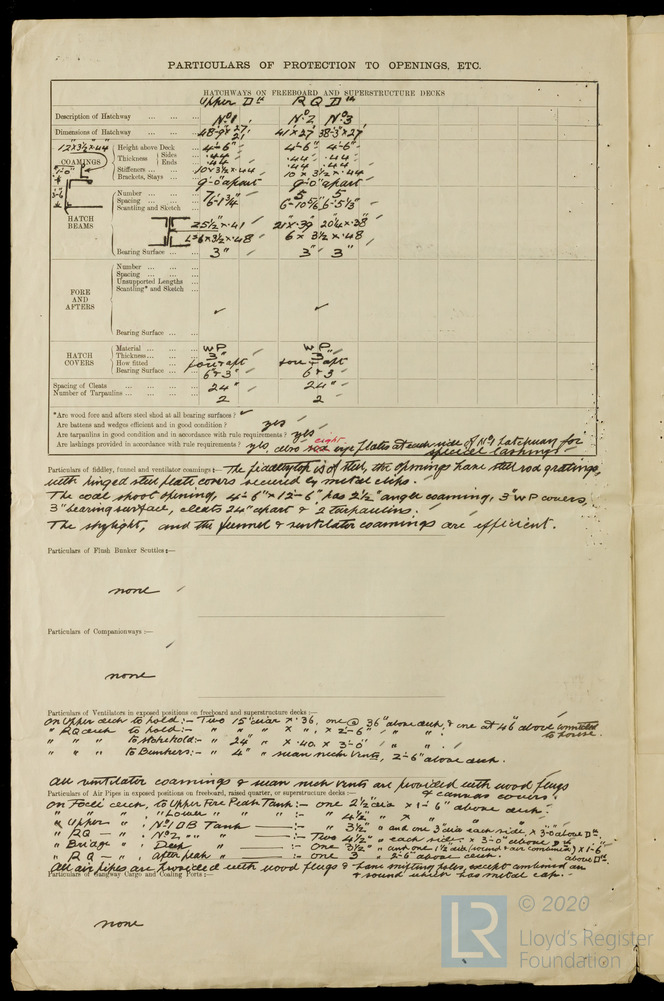 PARTICULARS OF PROTECTION TO OPENINGS, ETC.
HATCHWAYS ON FREEBOARD AND SUPERSTRUCTURE DECKS
Upper Dk R Q Dk
Description of Hatchway ... ... ... No 1 No 2 No 3
Dimensions of Hatchway ... ... ... 41 x 27 38-3 x 27
12" x 3½" x .44"
COAMINGS
Height above Deck 4-6" 4-6" 4-6"
Thickness Sides .44 .44 .44
Ends .44 .44 .44
Stiffeners ... ... ... 10 x 3½ x .44 10 x 3½ x .44
Brackets, Stays ... ... 9-0" apart 9-0" apart
HATCH BEAMS
Number ... ... ... 7 5 5
Spacing ... ... ... 6-1¾" 6-10⅝ 6-5½"
Scantling and Sketch ...
25½" x .41 21" x .39 20¼ x .38
6 x 3½ x .48 6 x 3½ x .48
Bearing Surface ... ... 3" 3" 3"
FORE AND AFTERS
Number ... ... ...
Spacing ... ... ...
Unsupported Lengths ...
Scantling* and Sketch ...
Bearing Surface ... ...
HATCH COVERS
Material ... ... ... WP WP
Thickness ... ... ... 3" 3"
How fitted ... ... fore & aft fore & aft
Bearing Surface ... ... 6 & 3" 6 & 3
Spacing of Cleats ... ... ... 24" 24"
Number of Tarpaulins ... ... ... 2 2
*Are wood fore and afters steel shod at all bearing surfaces?
Are battens and wedges efficient and in good condition? yes
Are tarpaulins in good condition and in accordance with rule requirements? yes
Are lashings provided in accordance with rule requirements? yes, also eight eye plates at each side of No 1 hatchway for special lashings
Particulars of fiddley, funnel and ventilator coamings:— The fiddley top is of steel, the openings have steel rod gratings,
with hinged steel plate covers secured by metal clips.
The coal shoot opening, 4-6" x 12-6" has 2½" angle coaming, 3" WP covers,
3" bearing surface, cleats 24" apart & 2 tarpaulins.
The skylight, and the funnel & ventilator coamings are efficient.
Particulars of Flush Bunker Scuttles:—
none
Particulars of Companionways:—
none
Particulars of Ventilators in exposed positions on freeboard and superstructure decks:—
On Upper deck to hold:- Two 15" diar x .36, one @ 36" above deck, & one at 46" above connected to house.
" RQ deck to hold:- " " " x " x 2-6" " "
" " " to Stokehold:- " 24" " x .40 x 3-0" " "
" " " to Bunkers:- " 4" " swan neck vents, 2-6" above deck.
All ventilator coamings & swan neck vents are provided with wood plugs & canvas covers.
Particulars of Air Pipes in exposed positions on freeboard, raised quarter, or superstructure decks:—
On Focsle deck, to Upper Fore Peak Tank:- one 2½" dia x 1-6" above deck.
" " " " Lower " " " :- " 4½" " x " " "
" Upper " " No 1 DB Tank :- " 3½" " and one 3" dia each side, x 3-0 above Dk.
" RQ " " No 2 " " :- Two 4½" " each side x 3-0" above Dk
" Bridge " Deep " :- One 3½" " and one 1½" dia (sound & air combined) x 1-6" above Dk.
" RQ " " after peak :- one 3" " 2-6" above deck.
All air pipes are provided with wood plugs & lane enifting plugs, except combined air & sound which has metal cap.
Particulars of Gangway Cargo and Coaling Ports:—
none
© 2020
LR
Lloyd's Register
Foundation